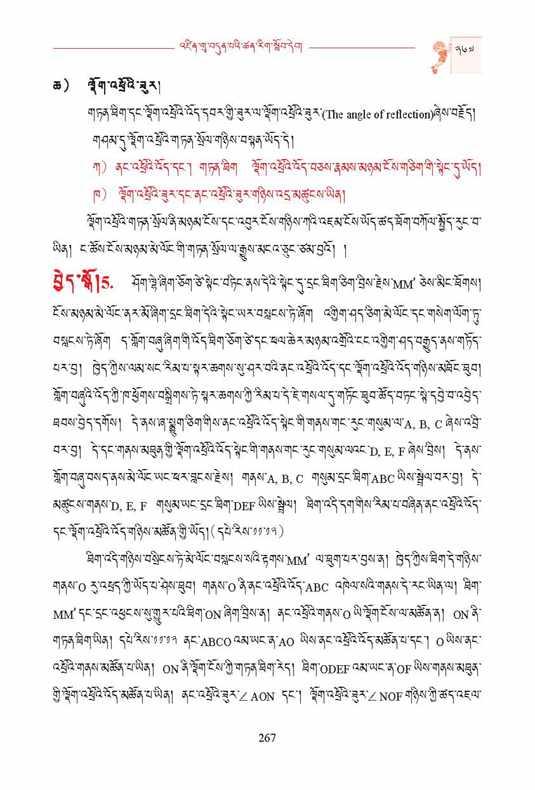 འཛིན་གྲྭ་བདུན་པའི་ཚན་རིག་སློབ་དེབ།
༢༦༧
ཆ) ལྡོག་འཕྲོའི་ཟུར།
གཏན་ཐིག་དང་ལྡོག་འཕྲོའི་འོད་དབར་གྱི་ཟུར་ལ་ལྡོག་འཕྲོའི་ཟུར་(The angle of reflection)ཞེས་བརྗོད།
གཤམ་དུ་ལྡོག་འཕྲོའི་གཏན་སྲོལ་གཉིས་བསྟན་ཡོད་དེ།
ཀ) ནང་འཕྲོའི་འོད་དང་། གཏན་ཐིག ལྡོག་འཕྲོའི་འོད་བཅས་རྣམས་མཉམ་ངོས་གཅིག་གི་སྟེང་དུ་ཡོད།
ཁ) ལྡོག་འཕྲོའི་ཟུར་དང་ནང་འཕྲོའི་ཟུར་གཉིས་འདྲ་མཚུངས་ཡིན།
ལྡོག་འཕྲོའི་གཏན་སྲོལ་ནི་མཉམ་ངོས་དང་འབུར་ངོས་གཉིས་ཀའི་འཇམ་ངོས་ཡོད་ཚད་ཐོག་བཀོལ་སྤྱོད་རུང་བ་
ཡིན། ང་ཚོས་ངོས་མཉམ་མེ་ལོང་གི་གཏན་སྲོལ་ལ་རྒྱུས་མངའ་ཅུང་ཙམ་བྱའོ། །
བྱེད་སྒོ།5. ཤོག་ལྷེ་ཞིག་ཅོག་ཙེ་སྟེང་བཏིང་ནས་དེའི་སྟེང་དུ་དྲང་ཐིག་ཅིག་བྲིས་རྗེས་MM' ཅེས་མིང་ཐོགས།
ངོས་མཉམ་མེ་ལོང་ནར་མོ་ཞིག་དྲང་ཐིག་དེའི་སྟེང་ཡར་བསླངས་ཏེ་ཞོག འགྱིག་ཤད་ཅིག་མེ་ལོང་དང་གསེག་ལོག་ཏུ་
བསླངས་ཏེ་ཞོག ད་གློག་བཞུ་ཞིག་གི་འོད་ཐིག་ཅོག་ཙེ་དང་ཕལ་ཆེར་མཉམ་འགྲོའི་ངང་འགྱིག་ཤད་བརྒྱུད་ནས་གཏོད་
པར་བྱ། ཁྱེད་ཀྱིས་ལམ་སང་རིམ་པ་སྟར་ཆགས་སུ་ཤར་བའི་ནང་འཕྲོའི་འོད་དང་ལྡོག་འཕྲོའི་འོད་གཉིས་མཐོང་ཐུབ།
གློག་བཞུའི་འོད་ཀྱི་ཁ་ཕྱོགས་བསྒྲིགས་ཏེ་སྟར་ཆགས་ཀྱི་རིམ་པ་དེ་ཇེ་གསལ་དུ་གཏོང་ཐུབ་ཚོད་བཏང་སྟེ་དབྱེ་བ་འབྱེད་
ཐབས་བྱེད་དགོས། དེ་ནས་ཞ་སྨྱུག་ཅིག་གིས་ནང་འཕྲོའི་འོད་སྟེང་གི་གནས་གང་རུང་གསུམ་ལ་A, B, C ཞེས་འབྲི་
བར་བྱ། དེ་དང་གནས་མཐུན་གྱི་ལྡོག་འཕྲོའི་འོད་སྟེང་གི་གནས་གང་རུང་གསུམ་ལའང་D, E, F ཞེས་བྲིས། དེ་ནས་
གློག་བཞུ་བསད་ནས་མེ་ལོང་ཡང་ཕར་བླངས་རྗེས། གནས་A, B, C གསུམ་དྲང་ཐིག་ABC ཡིས་སྦྲེལ་བར་བྱ། དེ་
མཚུངས་གནས་D, E, F གསུམ་ཡང་དྲང་ཐིག་DEF ཡིས་སྦྲེལ། ཐིག་འདི་དག་གིས་རིམ་པ་བཞིན་ནང་འཕྲོའི་འོད་
དང་ལྡོག་འཕྲོའི་འོད་གཉིས་མཚོན་གྱི་ཡོད།(དཔེ་རིས་༡༡་༡༡)
ཐིག་འདི་གཉིས་བསྲིངས་ཏེ་མེ་ལོང་བསླངས་སའི་རྟགས་MM' ལ་ཐུག་པར་བྱས་ན། ཁྱེད་ཀྱིས་ཐིག་དེ་གཉིས་
གནས་O རུ་འཕྲད་ཀྱི་ཡོད་པ་ཤེས་ཐུབ། གནས་O ནི་ནང་འཕྲོའི་འོད་ABC འཁེལ་སའི་གནས་དེ་རང་ཡིན་ལ། ཐིག་
MM'དང་དྲང་འཕྱངས་སུ་གྱུར་པའི་ཐིག་ON ཞིག་བྲིས་ན། ནང་འཕྲོའི་གནས་O ཡི་ལྡོག་ངོས་ལ་མཚོན་ན། ON ནི་
གཏན་ཐིག་ཡིན། དཔེ་རིས་༡༡་༡༡ ནང་ABCO འམ་ཡང་ན་AO ཡིས་ནང་འཕྲོའི་འོད་མཚོན་པ་དང་། O ཡིས་ནང་
འཕྲོའི་གནས་མཚོན་པ་ཡིན། ON ནི་ལྡོག་ངོས་ཀྱི་གཏན་ཐིག་རེད། ཐིག་ODEF འམ་ཡང་ན་OF ཡིས་གནས་མཐུན་
གྱི་ལྡོག་འཕྲོའི་འོད་མཚོན་པ་ཡིན། ནང་འཕྲོའི་ཟུར་∠AON དང་། ལྡོག་འཕྲོའི་ཟུར་∠NOF གཉིས་ཀྱི་ཚད་འཇལ་
267